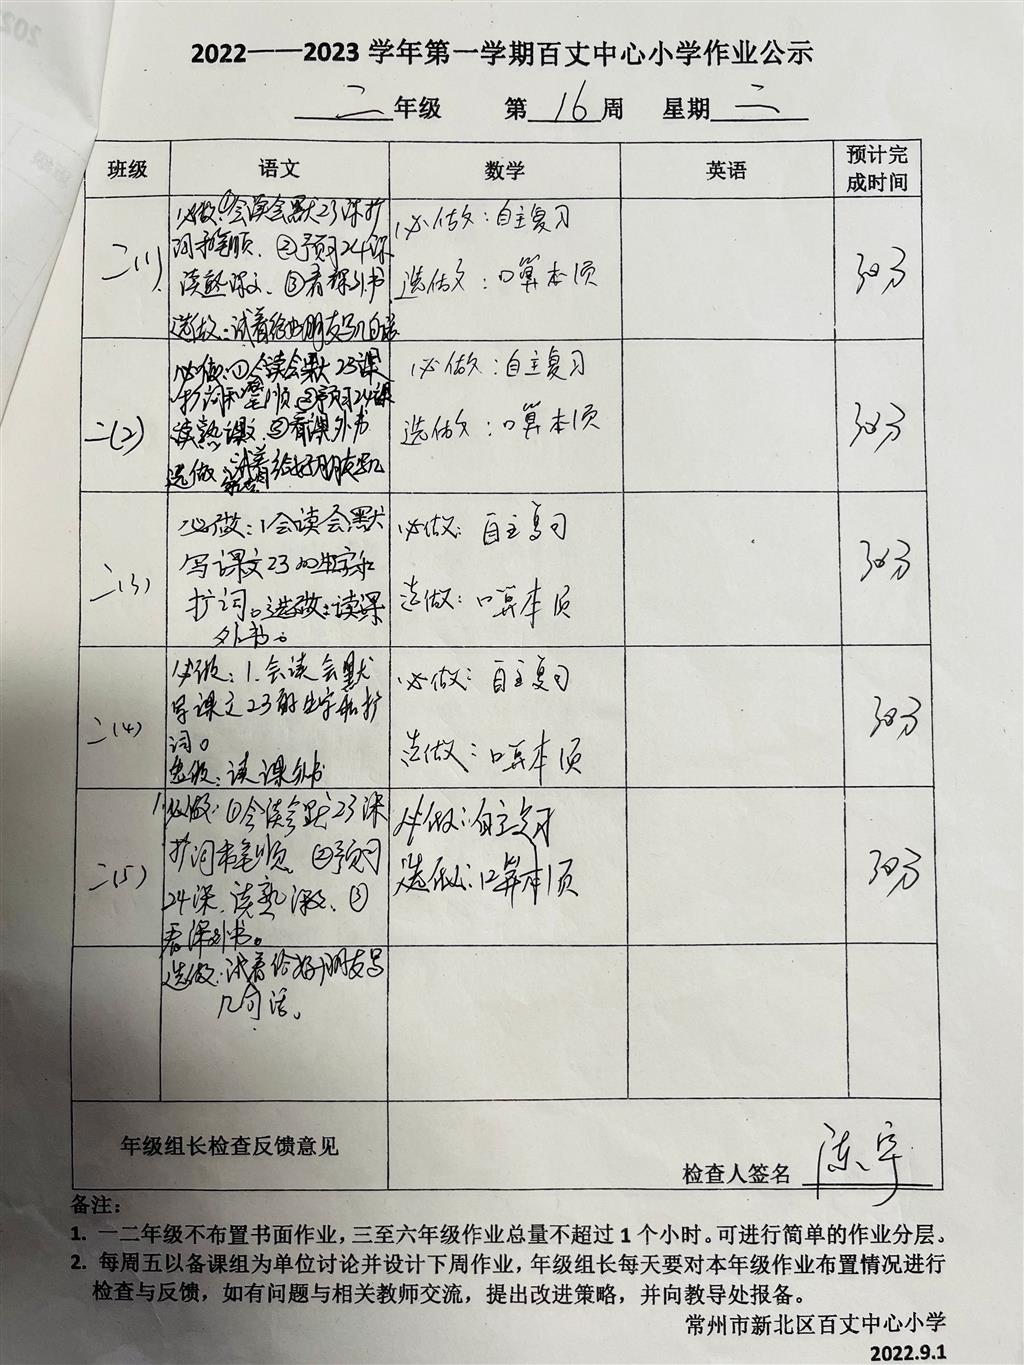 2022——2023学年第一学期百丈中心小学作业公示
二年级 第16周 星期二
班级 语文 数学 英语 预计完成时间
二(1)
必做:①会读会默23课扩
词和笔顺、②预习24课
读熟课文、③看课外书
选做:试着给好朋友写几句话
必做:自主复习
选做:口算本1页
30分
二(2)
必做:①会读会默23课
扩词和笔顺②预习24课
读熟课文③看课外书
选做 试着给好朋友写几
必做:自主复习
选做:口算本1页
30分
二(3)
必做:1会读会默
写课文23的生字和
扩词。选做:读课
外书。
必做:自主复习
选做:口算本1页
30分
二(4)
必做:1.会读会默
写课文23的生字和扩
词。
选做:读课外书
必做:自主复习
选做:口算本1页
30分
二(5)
必做:①会读会默23课
扩词和笔顺、②预习
24课,读熟课文、③
看课外书。
选做:试着给好朋友写
几句话。
必做:自主复习
选做:口算本1页
30分
年级组长检查反馈意见
检查人签名 陈宇
备注:
1. 一二年级不布置书面作业,三至六年级作业总量不超过1个小时。可进行简单的作业分层。
2. 每周五以备课组为单位讨论并设计下周作业,年级组长每天要对本年级作业布置情况进行
检查与反馈,如有问题与相关教师交流,提出改进策略,并向教导处报备。
常州市新北区百丈中心小学
2022.9.1